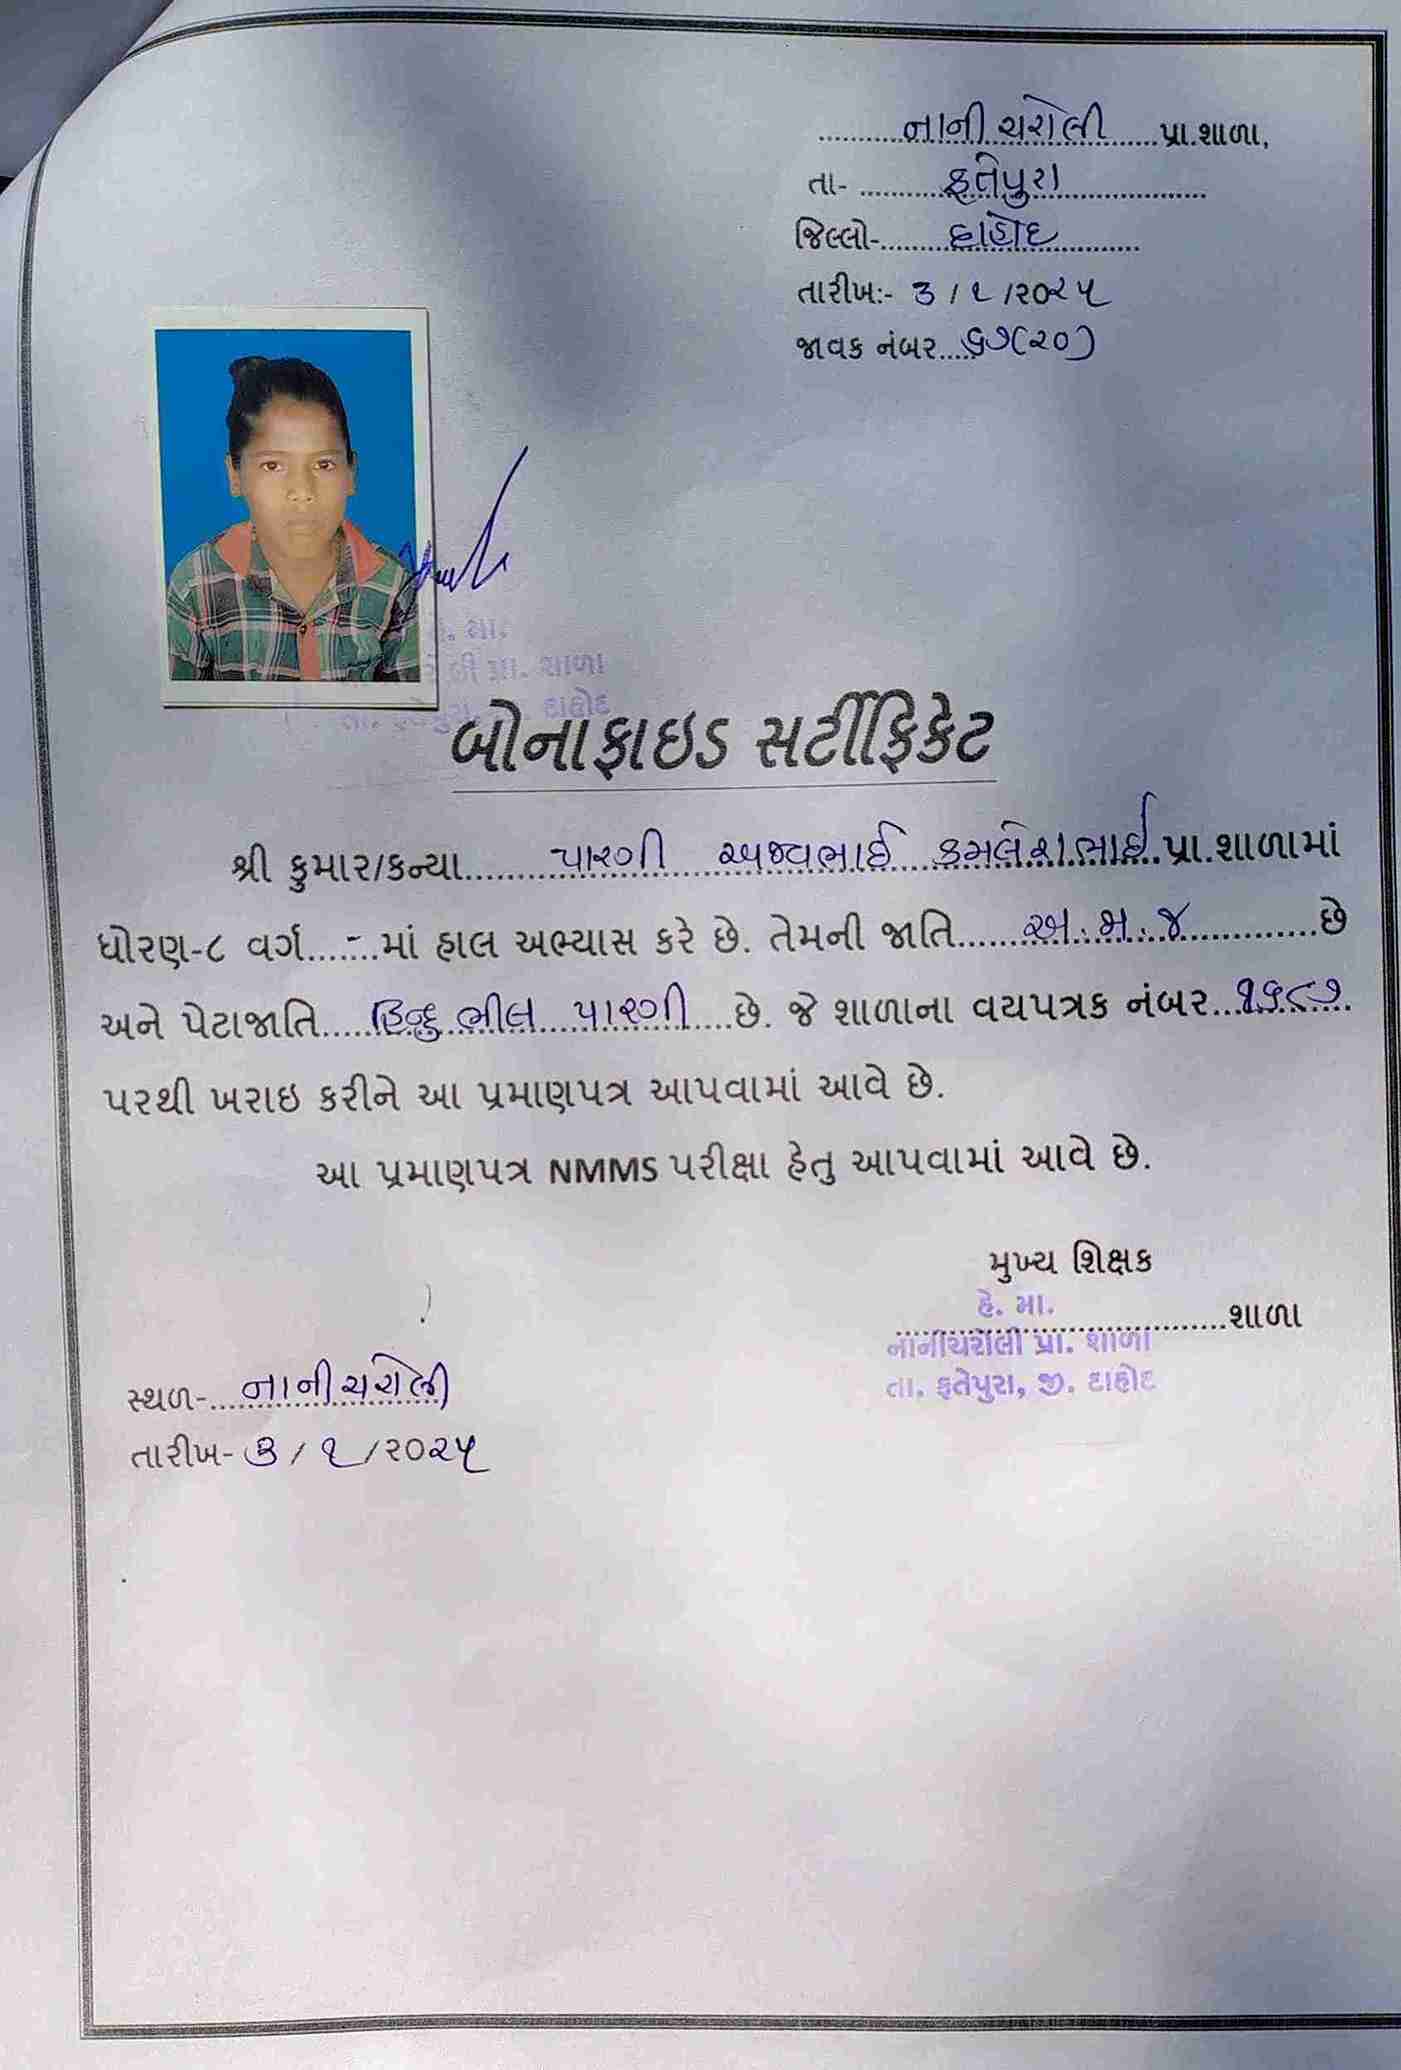 નાની ચરોલી પ્રા.શાળા,
તા- ફતેપુરા
જિલ્લો- દાહોદ
તારીખ:- ૩ / ૧ /૨૦૨૫
જાવક નંબર ૬૭(૨૦)
હે. મા.
પ્રા. શાળા
તા. ફતેપુરા, દાહોદ
બોનાફાઇડ સર્ટીફિકેટ
શ્રી કુમાર/કન્યા પારગી અજયભાઈ કમલેશભાઈ પ્રા.શાળામાં
ધોરણ-૮ વર્ગ - માં હાલ અભ્યાસ કરે છે. તેમની જાતિ અ.મ.જ છે
અને પેટાજાતિ હિન્દુ ભીલ પારગી છે. જે શાળાના વયપત્રક નંબર ૧૫૮૭
પરથી ખરાઇ કરીને આ પ્રમાણપત્ર આપવામાં આવે છે.
આ પ્રમાણપત્ર NMMS પરીક્ષા હેતુ આપવામાં આવે છે.
મુખ્ય શિક્ષક
હે. મા.
શાળા
નાનીચરોલી પ્રા. શાળા
તા. ફતેપુરા, જી. દાહોદ
સ્થળ- નાની ચરોલી
તારીખ- ૩ / ૧ / ૨૦૨૫